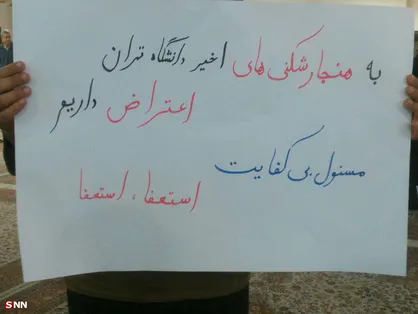 به هنجارشکنی های اخیر دانشگاه تهران
اعتراض داریم
مسئول بی کفایت
استعفا، استعفا
SNN